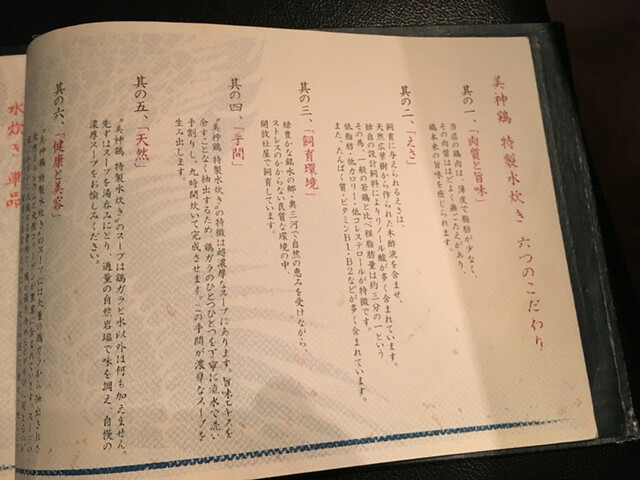 美神鶏 特製水炊き 六つのこだわり
其の一、「肉質と旨味」
当店の鶏肉は、薄皮で脂肪が少なく、
その肉質はほどよく歯ごたえがあり、
鶏本来の旨味を感じられます。
其の二、「えさ」
飼育に与えられるえさは、
天然広葉樹から作られた木酢液を含ませ、
独自の設計飼料によりリノール酸が多く含まれています。
その為、一般の若鶏と比べ粗脂肪量は約三分の一という
低脂肪・低カロリー・低コレステロールが特徴です。
また、たんぱく質・ビタミンB1・B2などが多く含まれています。
其の三、「飼育環境」
緑豊かな銘水の郷・奥三河で自然の恵みを受けながら、
ストレスのかからない良質な環境の中、
開放鶏舎で飼育しています。
其の四、「手間」
“美神鶏 特製水炊き”の特徴は超濃厚なスープにあります。旨味エキスを
余すことなく抽出するため、鶏ガラのひとつひとつを丁寧に流水で洗い
手割りし、九時間炊いて完成させます。この手間が濃厚なスープを
生み出します。
其の五、「天然」
“美神鶏 特製水炊き”のスープは鶏ガラと水以外は何も加えません。
先ずはスープを湯呑みにとり、適量の自然岩塩で味を調え、自慢の
濃厚スープをお愉しみください。
其の六、「健康と美容」
“美神鶏 特製水炊き”のスープには大量の鶏ガラから抽出された
水炊き 単品